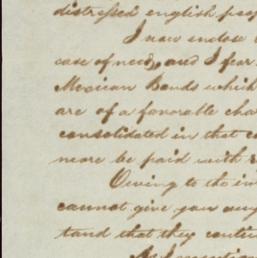 distressed english peop
I now enclose
case of need, and I fear
Mexican Bonds which
are of a favorable cha
consolidated in that c
more be paid with
Owing to the in
cannot give you any
tand that they conti
As I mention